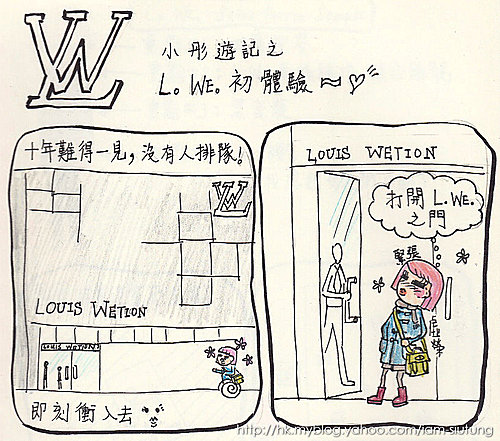 小彤遊記之
L. WE. 初體驗~
十年難得一見，沒有人排隊!
LOUIS WETION
LOUIS WETION
即刻衝入去
LOUIS WETION
打開 L. WE.
之門
緊張
虛榮
http://hk.myblog.yahoo.com/iam-siutung